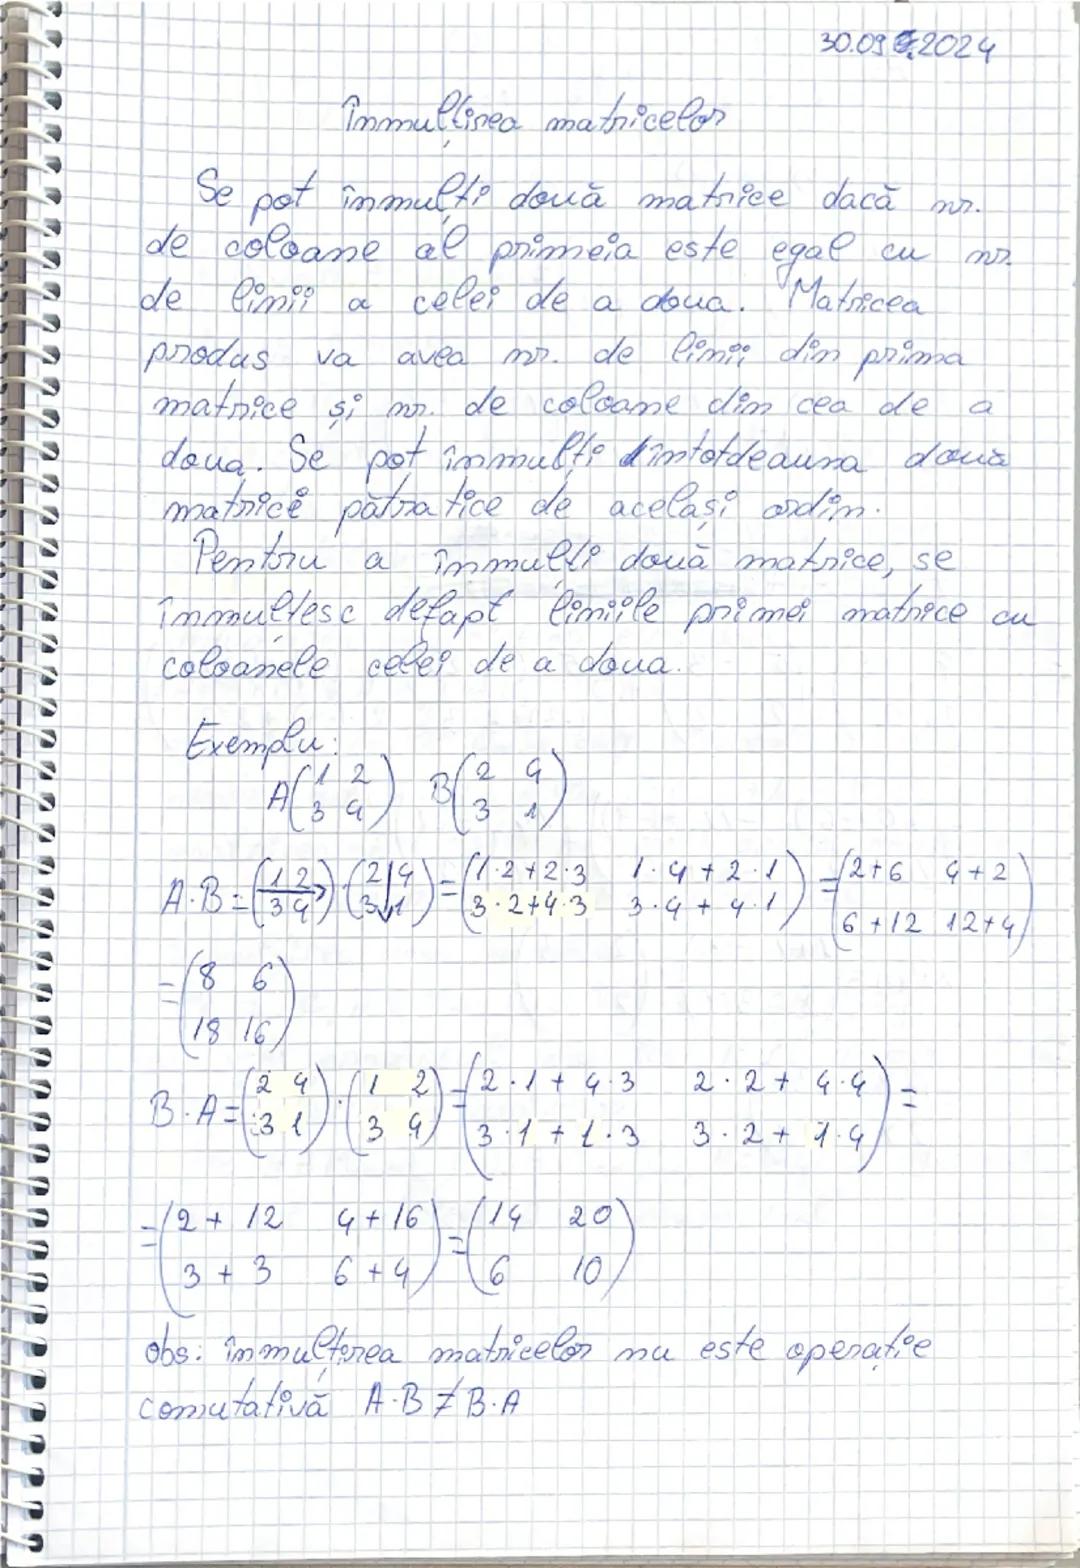 30.09.2024
Înmulțirea matricelor
Se pot înmulți două matrice dacă nr.
de coloane al primeia este egal cu nr.
de linii a celei de a doua. Matricea
produs va avea nr. de linii din prima
matrice și nr. de coloane din cea de a
doua. Se pot înmulți întotdeauna două
matrice pătratice de același ordin.
Pentru a înmulți două matrice, se
înmulțesc defapt liniile primei matrice cu
coloanele celei de a doua.
Exemplu:
A(1 2 B(2 4
3 4) 3 1)
A·B=(1 2 (2 4 =(1·2+2·3 1·4+2·1 =(2+6 4+2
3 4)· 3 1) 3·2+4·3 3·4+4·1) 6+12 12+4)
=(8 6
18 16)
B·A=(2 4 (1 2 =(2·1+4·3 2·2+4·4 =
3 1)· 3 4) 3·1+1·3 3·2+1·4)
=(2+12 4+16 =(14 20
3+3 6+4) 6 10)
obs: înmulțirea matricelor nu este operație
comutativă A·B≠B·A